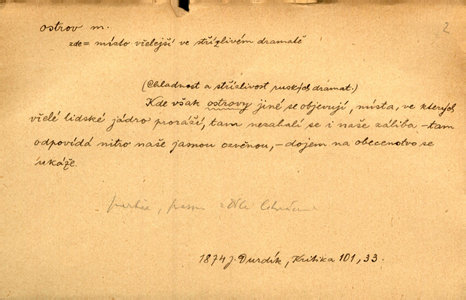 ostrov m.
2
zde = místo vřelejší ve střízlivém dramatě
(Chladnost a střízlivost ruských drámat.)
Kde však ostrovy jiné se objevují, místa, ve kterých
vřelé lidské jádro proráží, tam nezahálí se i naše záliba – tam
odpovídá nitro naše jasnou ozvěnou, – dojem na obecenstvo se
ukáže.
1874 J. Durdík, Kritika 101, 33.